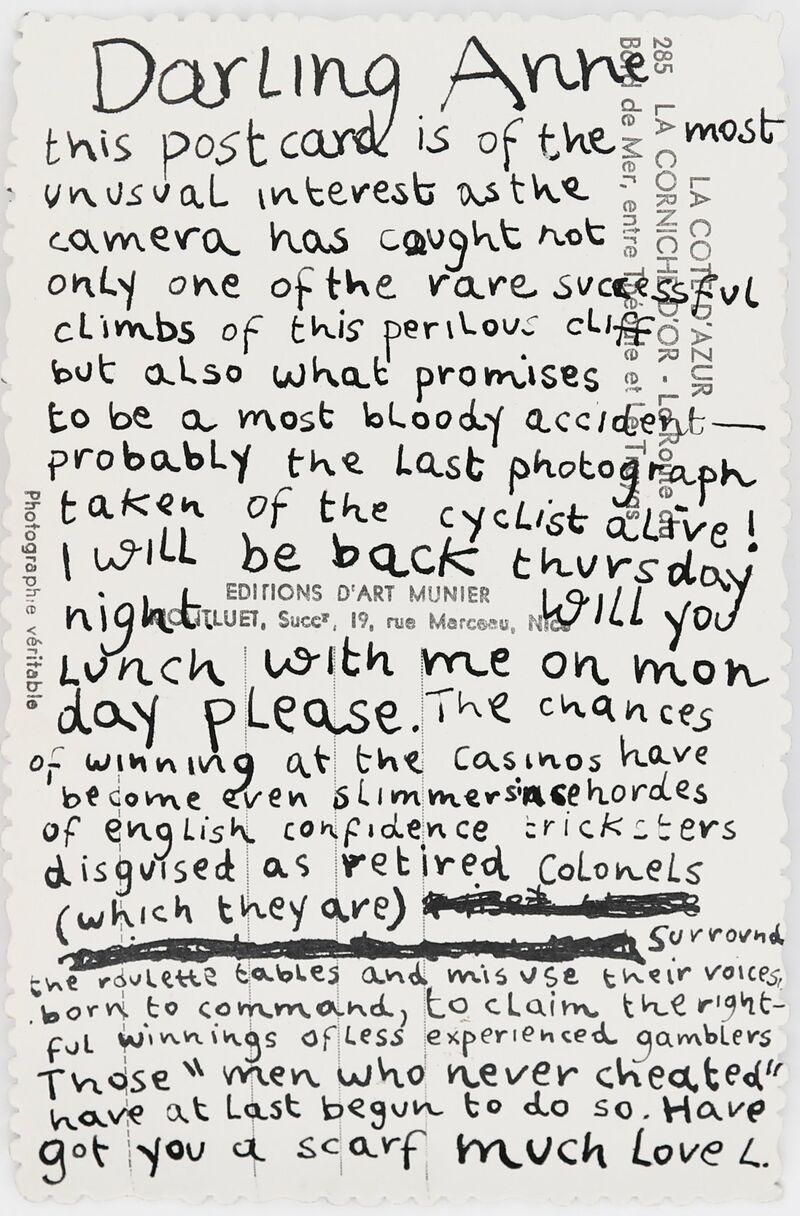 Darling Anne
this postcard is of the most
unusual interest as the
camera has caught not
only one of the rare successful
climbs of this perilous cliff
but also what promises
to be a most bloody accident—
probably the last photograph
taken of the cyclist alive!
I will be back thursday
night. Will you
lunch with me on mon
day please. The chances
of winning at the casinos have
become even slimmer since hordes
of english confidence tricksters
disguised as retired Colonels
(which they are)
surround
the roulette tables and misuse their voices,
born to command, to claim the right-
ful winnings of less experienced gamblers
Those "men who never cheated"
have at last begun to do so. Have
got you a scarf much love L.
LA COTE D'AZUR
285 LA CORNICHE D'OR - La Route du
Bord de Mer, entre Théoule et Le Trayas
EDITIONS D'ART MUNIER
MOUTLUET, Succr, 19, rue Marceau, Nice
Photographie véritable